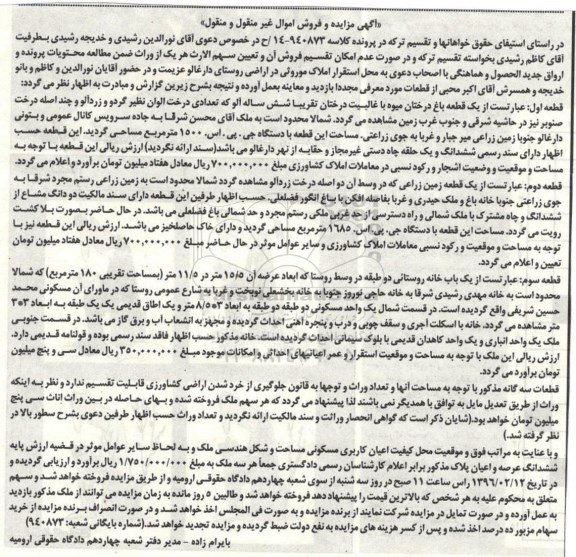 «آگهی مزایده و فروش اموال غیر منقول و منقول»
در راستای استیفای حقوق خواهانها و تقسیم ترکه در پرونده کلاسه ۹۴۰۸۷۳-۱۴ /ح در خصوص دعوی آقای نورالدین رشیدی و خدیجه رشیدی بطرفیت
آقای کاظم رشیدی بخواسته تقسیم ترکه و در صورت عدم امکان تقسیم فروش آن و تعیین سهم الارث هر یک از وراث ضمن مطالعه محتویات پرونده و
اوراق جدید الحصول و هماهنگی با اصحاب دعوی به محل استقرار املاک موروثی در اراضی روستای دارغالو عزیمت و در حضور آقایان نورالدین و کاظم و بانو
خدیجه و همسرش آقای اکبر محبی از قطعات مورد معرفی مجددا بازدید و معاینه بعمل آورده و نتیجه بشرح زیرین گزارش و مبادرت به اظهار نظر می گردد:
قطعه اول: عبارتست از یک قطعه باغ درختان میوه با غالبیت درختان تقریبا شش ساله آلو که تعدادی درخت آلوان نظیر گردو و زردآلو و چند اصله درخت
صنوبر نیز در حاشیه شرقی و جنوب غرب زمین مشاهده می گردد. شمالا محدود است به ملک آقای محسن شرقا به جاده سرویس کانال عمومی و بتونی
دارغالو جنوبا زمین زراعی میر جبار و غربا به جوی زراعتی. مساحت این قطعه با دستگاه جی. پی. اس. ۱۵۰۰ مترمربع مساحی گردید. این قطعه حسب
اظهار دارای سند رسمی ششدانگ و یک حلقه چاه دستی غیرمجاز و حقابه از نهر دارغالو می باشد(سند ارائه نکردید) ارزش ریالی این قطعه با توجه به
مساحت و موقعیت و وضعیت اشجار و رکود نسبی در معاملات املاک کشاورزی مبلغ ۷۰۰,۰۰۰,۰۰۰ ریال معادل هفتاد میلیون تومان برآورد و اعلام می گردد.
قطعه دوم: عبارتست از یک قطعه زمین زراعی که در وسط آن دو اصله درخت زردآلو مشاهده گردد شمالا محدود است به زمین زراعی رستم مجرد شرقا به
جوی زراعتی جنوبا خانه باغ و ملک حیدری و غربا بفاصله افکن با باغ انگور فضلعلی. حسب اظهار طرفین این قطعه دارای سند مالکیت دو دانگ مشاع از
ششدانگ و چاه مشترک با ملک شمالی و راه دسترسی از حد غربی ملکی رستم مجرد و حد شمالی باغ فضلعلی می باشد. در حال حاضر بصورت بلا کشت
رویت می گردد. مساحت این قطعه با دستگاه جی. پی. اس. ۱۶۸۵ مترمربع مساحی گردید و دارای خاک حاصلخیز می باشد. ارزش ریالی این قطعه نیز با
توجه به مساحت و موقعیت و رکود نسبی معاملات املاک کشاورزی و سایر عوامل موثر در حال حاضر مبلغ ۷۰۰,۰۰۰,۰۰۰ ریال معادل هفتاد میلیون تومان
تعیین و اعلام می گردد.
قطعه سوم: عبارتست از یک باب خانه روستائی دو طبقه در وسط روستا که ابعاد عرصه آن ۱۵/۵ متر در ۱۱/۵ متر (بمساحت تقریبی ۱۸۰ مترمربع) که شمالا
محدود است به خانه مهدی رشیدی شرقا به خانه حاجی نوروز جنوبا به خانه بخشعلی نوبخت و غربا به شارع عمومی روستا که در ماورای آن مسکونی محمد
حسین شریفی واقع گردیده است. در قسمت شمال یک واحد مسکونی دو طبقه در دو طبقه به ابعاد ۸/۵۰۳ متر و یک اطاق قدیمی یک یک طبقه به ابعاد ۳۰۳
متر مشاهده می گردد. خانه با اسکلت آجری و سقف چوبی و درب و پنجره آهنی احداث گردیده و مجهز به انشعاب آب و برق گاز می باشد. در قسمت جنوبی
ملک یک واحد انباری و یک واحد کاهدان قدیمی با بلوک سیمانی احداث گردیده است. خانه مذکور حسب اظهار فاقد سند رسمی بوده و قولنامه قدیمی دارد.
ارزش ریالی این ملک با توجه به مساحت و موقعیت استقرار و عمر اعیانیهای احداثی و امکانات موجود مبلغ ۳۵۰,۰۰۰,۰۰۰ ریال معادل سی و پنج میلیون
تومان برآورد می گردد.
قطعات سه گانه مذکور با توجه به مساحت آنها و تعداد وراث و توجها به قانون جلوگیری از خرد شدن اراضی کشاورزی قابلیت تقسیم ندارد و نظر به اینکه
وراث از طریق تعدیل مایل به توافق با همدیگر نمی باشند لذا پیشنهاد می گردد که هر سهم ملک فروخته شده و بهای حاصله در بین وراث اناث سی پنج
میلیون تومان خواهد بود.(شایان ذکر است که گواهی انحصار وراثت و سند مالکیت ارائه نکردید و تعداد وراث حسب اظهار طرفین دعوی بشرح سطور بالا در
نظر گرفته شد.)
و با عنایت به مراتب فوق و موقعیت محل کیفیت اعیان کاربری مسکونی مساحت و شکل هندسی ملک و به لحاظ سایر عوامل موثر در قضیه ارزش پایه
ششدانگ عرصه و اعیان پلاک مذکور برابر اعلام کارشناسان رسمی دادگستری جمعا هر سه ملک به مبلغ ۱/۷۵۰/۰۰۰/۰۰۰ ریال برآورد و ارزیابی گردیده و
در تاریخ ۱۳۹۶/۰۲/۱۲ راس ساعت ۱۱ صبح در روز سه شنبه از سوی شعبه چهاردهم دادگاه حقوقی ارومیه و از طریق مزایده فروخته خواهد شد و سهم
متعلق به محکوم علیه به هر شخص که بالاترین قیمت را پیشنهاد دهد فروخته خواهد شد و طالبین ۵ روز مانده به زمان مزایده می توانند از ملک مذکور بازدید
به عمل آورده و در صورت تمایل در مزایده شرکت نمایند از برنده مزایده و به صورت فی المجلس اخذ خواهد شد و در صورت انصراف برنده مزایده از خرید
سهام مزبور ده درصد اخذ شده و پس از کسر هزینه های مزایده به نفع دولت ضبط گردیده و مزایده تجدید خواهد شد.(شماره بایگانی شعبه: ۹۴۰۸۷۳)
بایرام زاده - مدیر دفتر شعبه چهاردهم دادگاه حقوقی ارومیه